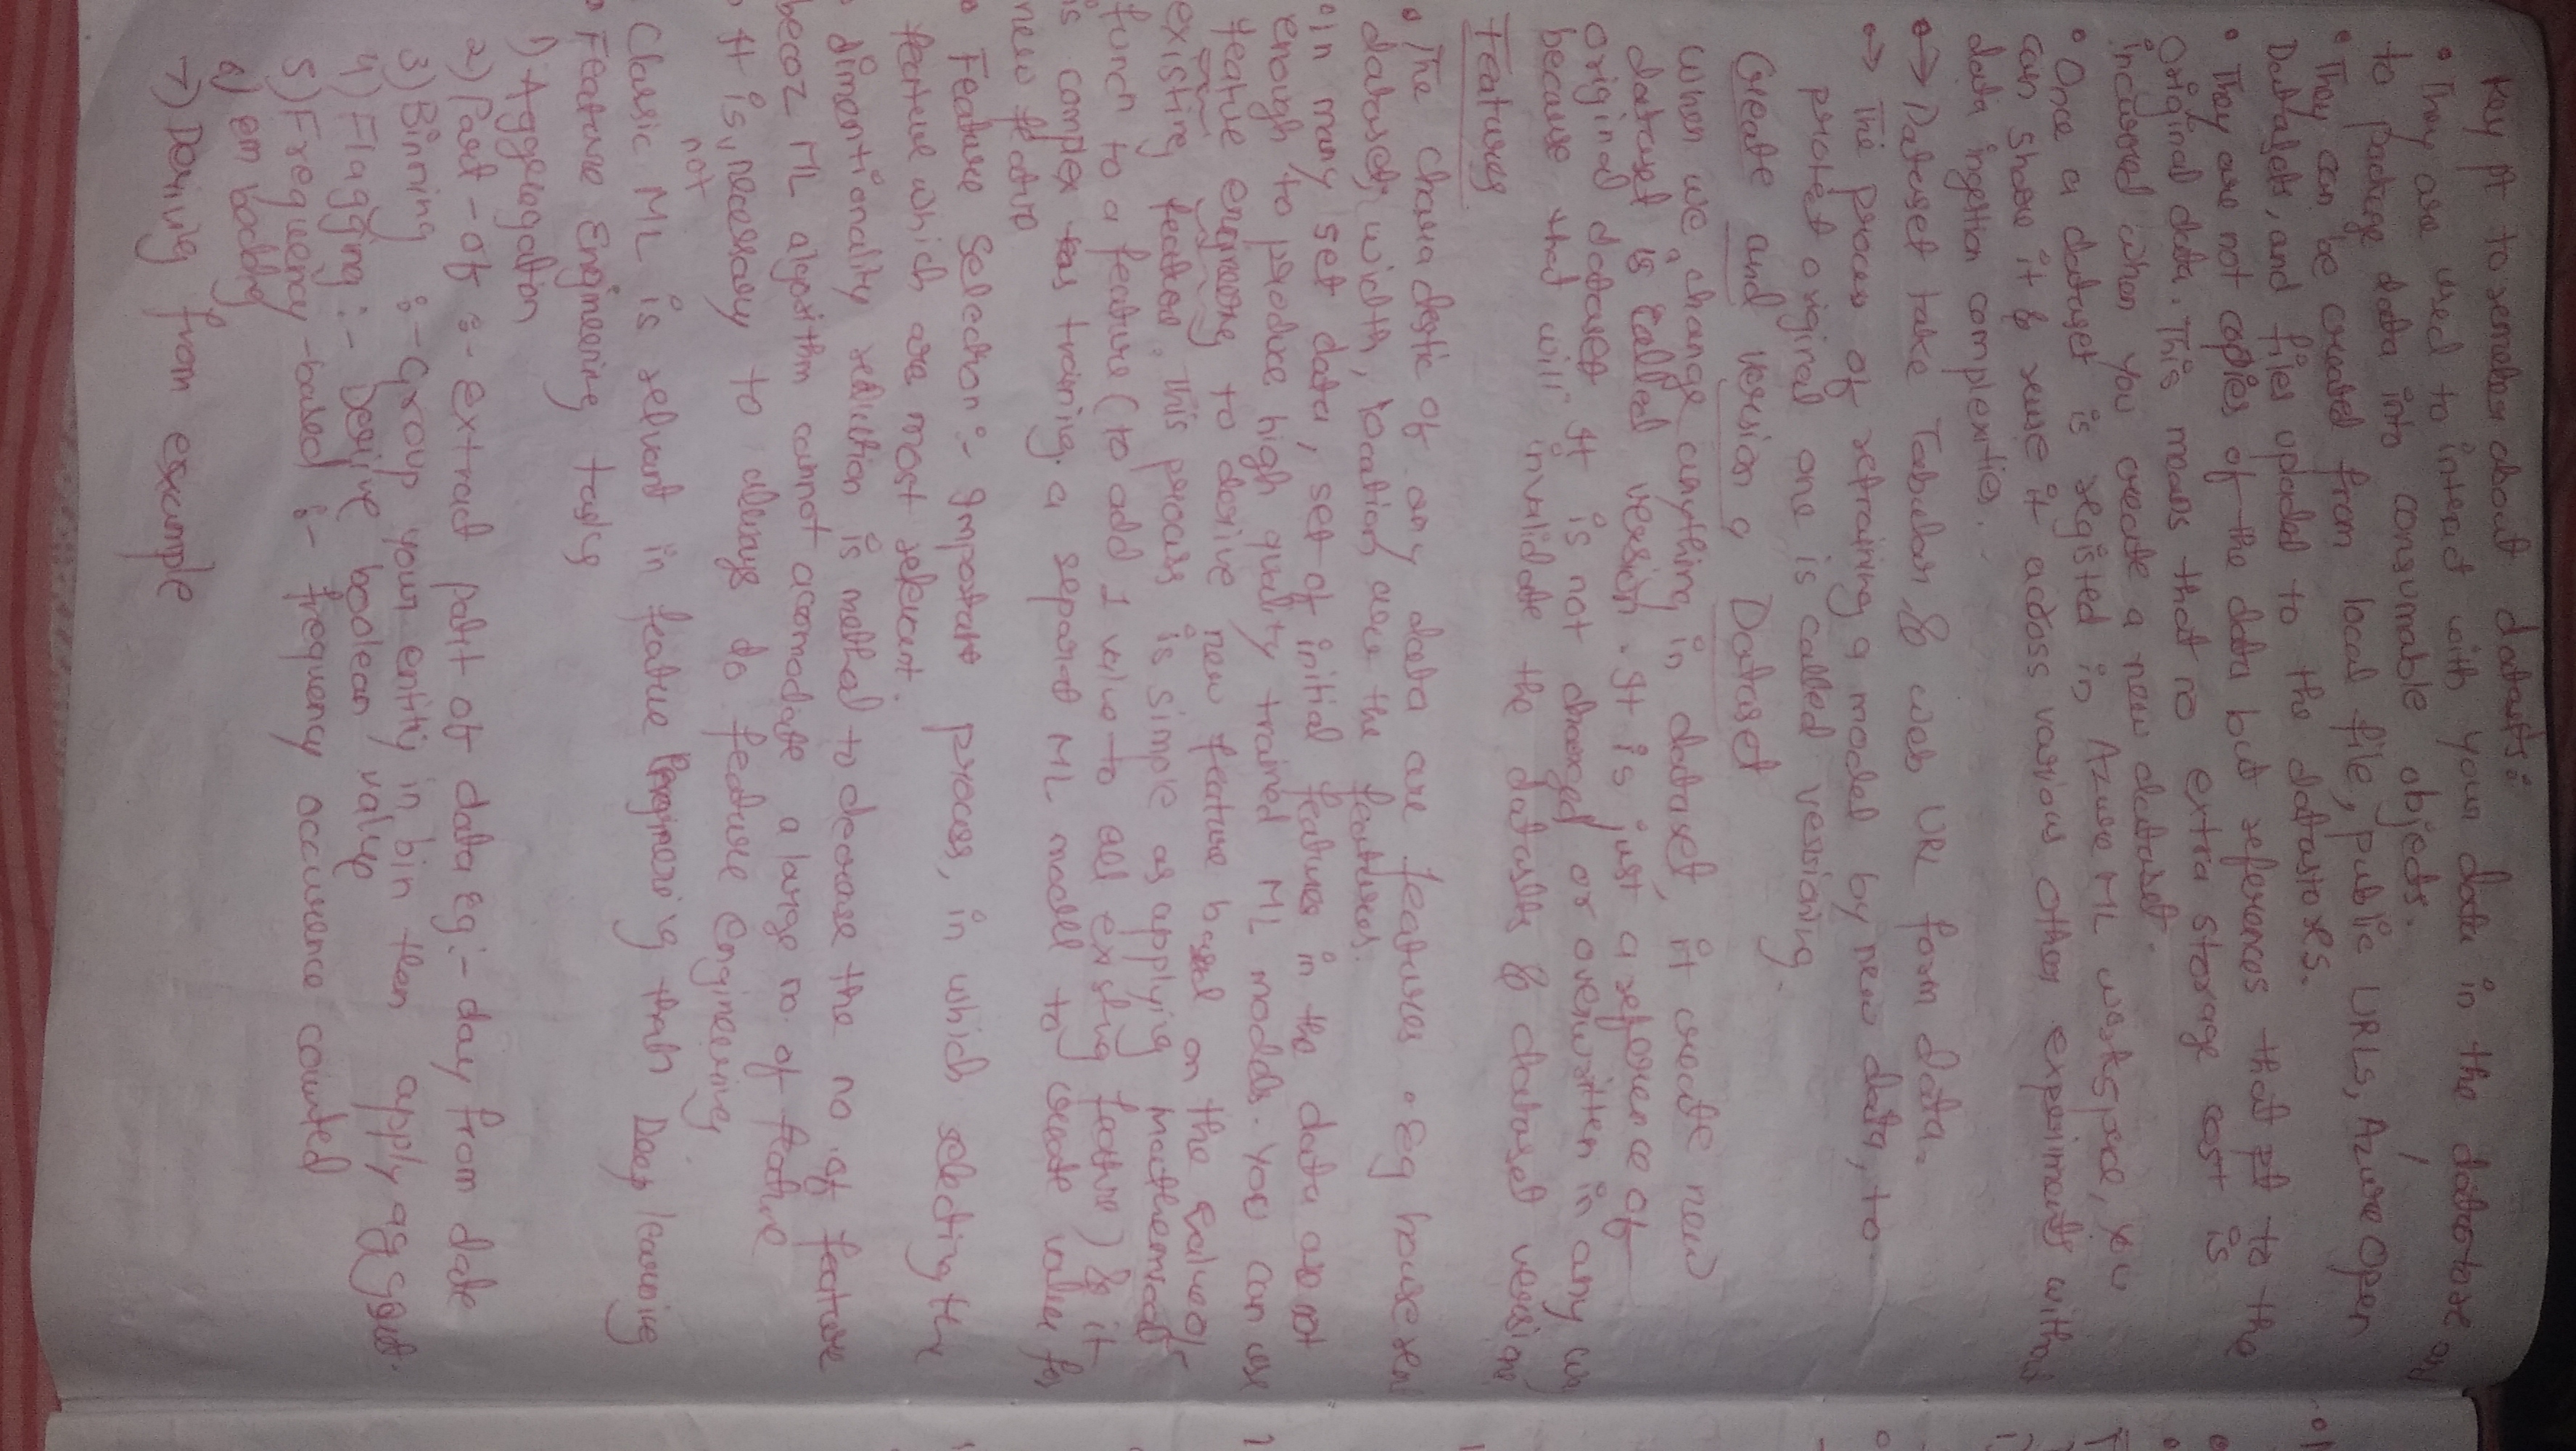 Key pt to remember about datasets:
• They are used to interact with your data in the datastore and
to package data into consumable objects.
• They can be created from local file, public URLs, Azure Open
Datasets, and files upload to the datastores.
• They are not copies of the data but references that pt to the
original data. This means that no extra storage cost is
incurred when you create a new dataset.
• Once a dataset is registed in Azure ML workspace, you
can share it & reuse it across various other experiments
data ingestion complexities.
→ Dataset take Tabular & web URL form data.
→ The process of retraining a model by new data, to
protet original one is called versioning.
Create and version a Dataset
When we change anything in dataset, it create new
dataset is called version. It is just a reference of
original dataset It is not changed or overwritten in any
because that will invalidate the datasets & dataset versioning
Features
• The of any data are features. Eg house
dataset, width, location are the features.
• In many set data, set of initial features in the data are not
enough to produce high quality trained ML models. You can use
feature engineering to derive new feature based on the values of
existing features. This process is simple as applying mathematical
func to a feature (to add 1 value to all existing feature) & it
is complex as training a separate ML model to create value for
new feature
• Feature Selection :- Important process, in which selecting the
feature which are most relevant.
• dimentionality reduction is method to decrease the no. of feature
becoz ML algorithm cannot accomodate a large no. of feature
• It is not necessary to always do feature engineering.
Classic ML is relevant in feature Engineering than Deep learning
• Feature Engineering tasks
1) Aggregation
2) Part-of :- extract part of data Eg:- day from date
3) Binning :- Group your entity in bin then apply
4) Flagging :- Derive boolean value
5) Frequency-based :- frequency occurence counted
6)
7) Deriving from example